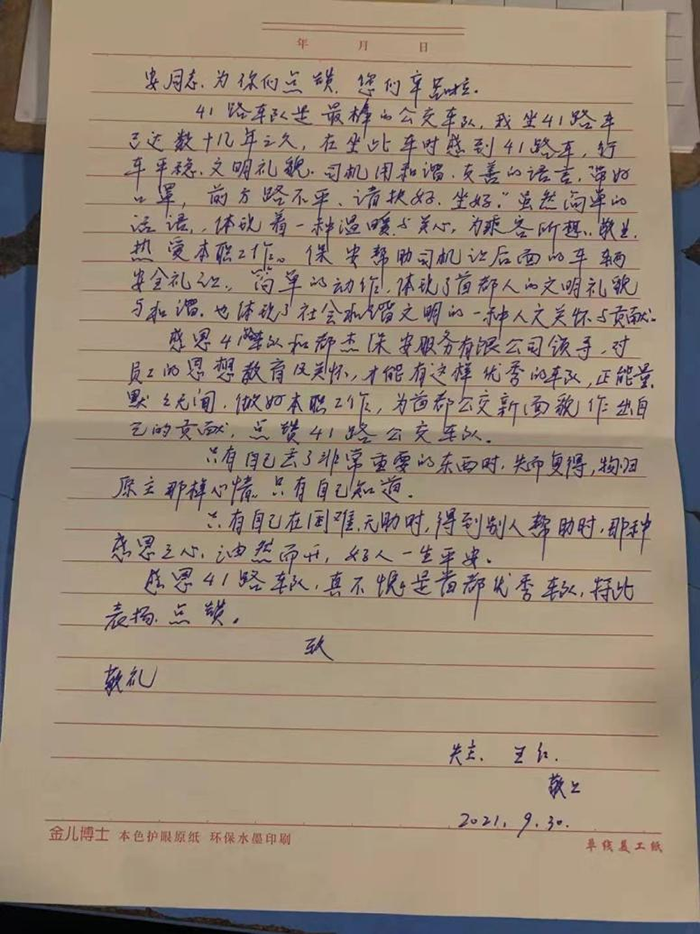 年 月 日
安同志、为你们点赞、您们辛苦啦。
41路车队是最棒的公交车队，我坐41路车
已达数十几年之久，在坐此车时感到41路车，行
车平稳、文明礼貌、司机用和谐、友善的语言，
口罩，前方路不平、请扶好、坐好。”虽然简单的
话语，体现着一种温暖与关心，为乘客所想、敬业、
热爱本职工作。保安帮助司机记后面的车辆
安全礼让。简单的动作，体现了首都人的文明礼貌
与和谐、也体现了社会和谐文明的一种人文关怀与贡献。
感恩41路车队和都杰保安服务有限公司领导，对
员工的思想教育及关怀，才能有这样优秀的车队，正能量。
默之无间，做好本职工作，为首都公交新面貌作出自
己的贡献，点赞41路公交车队。
只有自己丢了非常重要的东西时，失而复得，物归
原主那样心情。只有自己知道。
只有自己在困难无助时，得到别人帮助时，那种
感恩之心，油然而升，好人一生平安。
感恩41路车队，真不愧是首都优秀车队，特此
表扬、点赞。
致
敬礼
失主、王红.
敬上
2021.9.30.
金儿博士 本色护眼原纸 环保水墨印刷
单线美工纸